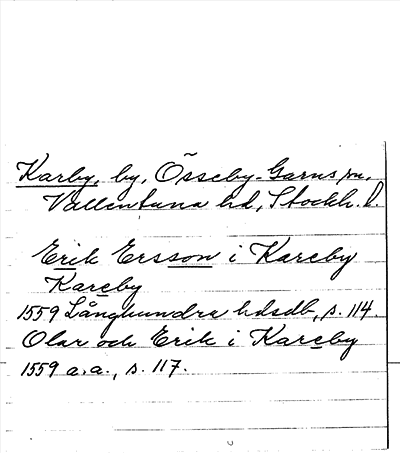 Karby, by, Össeby-Garns sn,
Vallentuna hd, Stockh. l.
Erik Ersson i Kareby
Kareby
1559 Långhundra hdsdb, s. 114.
Olar och Erik i Kareby
1559 a.a., s. 117.